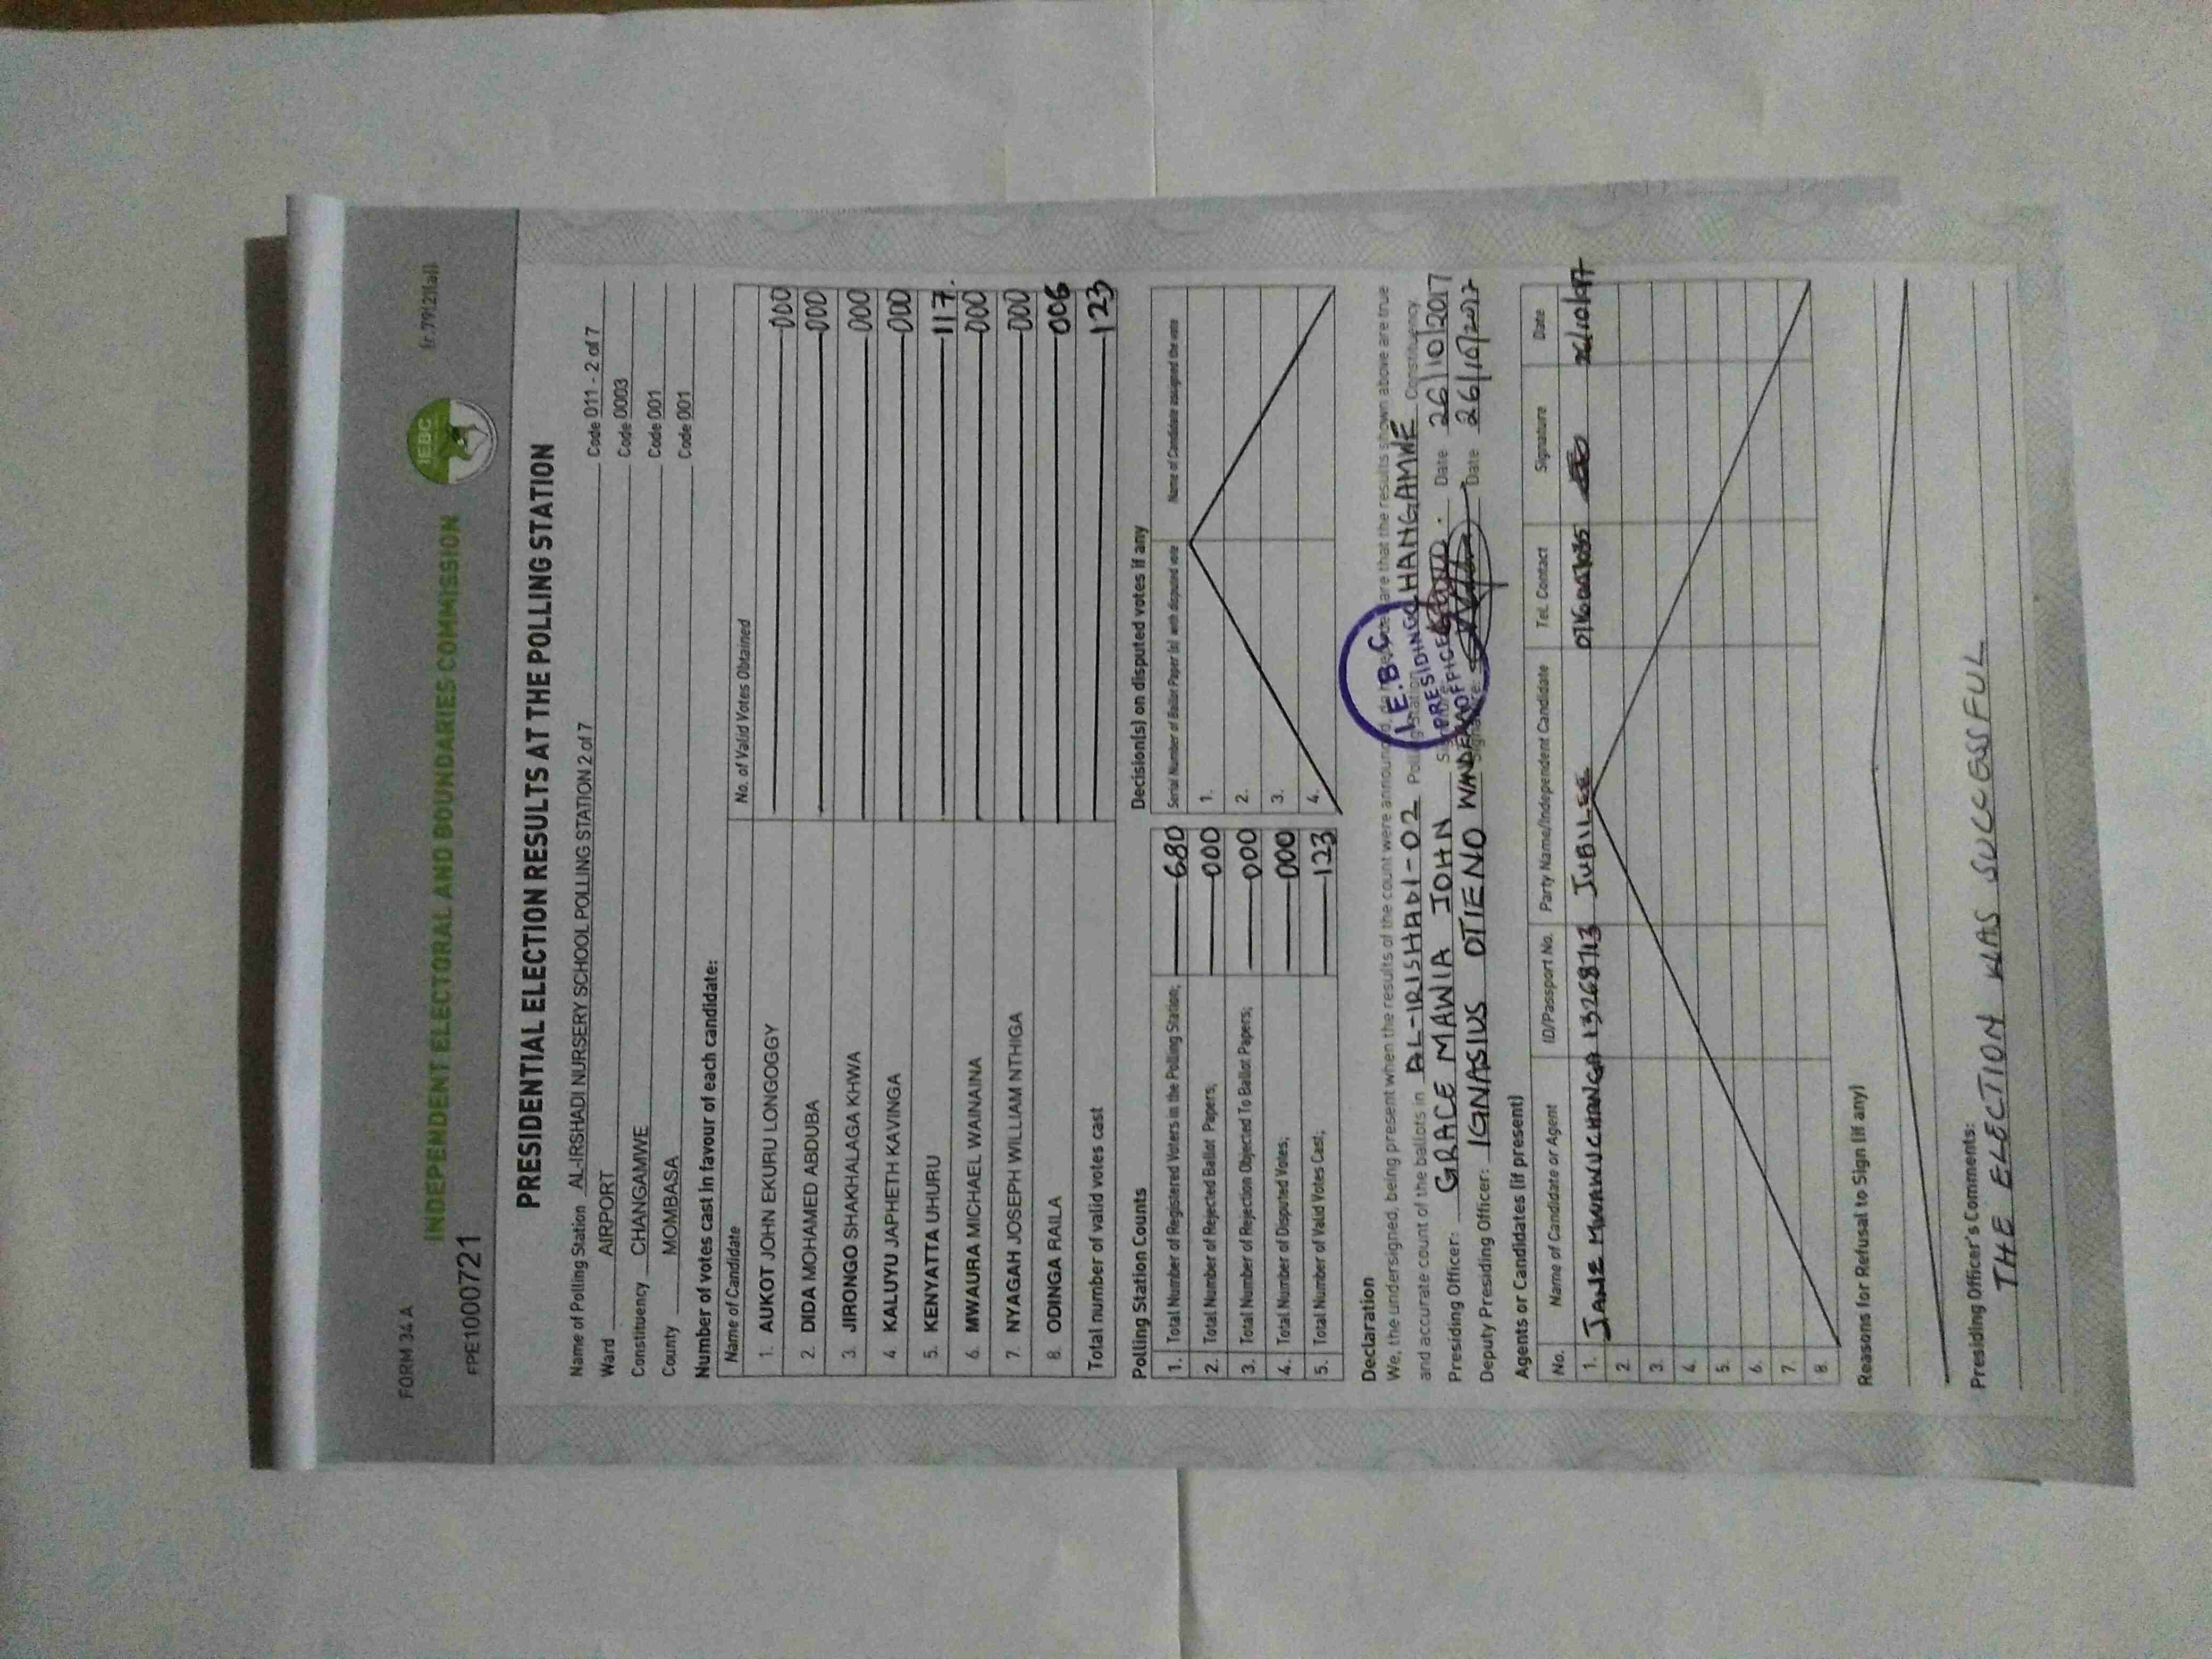 FORM 34 A
INDEPENDENT ELECTORAL AND BOUNDARIES COMMISSION
IEBC
(r.79(2)(a))
FPE1000721
PRESIDENTIAL ELECTION RESULTS AT THE POLLING STATION
Name of Polling Station AL-IRSHADI NURSERY SCHOOL POLLING STATION 2 of 7 Code 011 - 2 of 7
Ward AIRPORT Code 0003
Constituency CHANGAMWE Code 001
County MOMBASA Code 001
Number of votes cast in favour of each candidate:
Name of Candidate No. of Valid Votes Obtained
1. AUKOT JOHN EKURU LONGOGGY 000
2. DIDA MOHAMED ABDUBA 000
3. JIRONGO SHAKHALAGA KHWA 000
4. KALUYU JAPHETH KAVINGA 000
5. KENYATTA UHURU 117.
6. MWAURA MICHAEL WAINAINA 000
7. NYAGAH JOSEPH WILLIAM NTHIGA 000
8. ODINGA RAILA 006
Total number of valid votes cast 123
Polling Station Counts
1. Total Number of Registered Voters in the Polling Station; 680
2. Total Number of Rejected Ballot Papers; 000
3. Total Number of Rejection Objected To Ballot Papers; 000
4. Total Number of Disputed Votes; 000
5. Total Number of Valid Votes Cast; 123
Decision(s) on disputed votes if any
Serial Number of Ballot Paper (s) with disputed vote Name of Candidate assigned the vote
1.
2.
3.
4.
Declaration
We, the undersigned, being present when the results of the count were announced, do hereby declare that the results shown above are true
and accurate count of the ballots in AL-IRISHADI-02 Polling Station CHANGAMWE Constituency
Presiding Officer: GRACE MAWIA JOHN Date 26/10/2017
Deputy Presiding Officer: IGNASIUS OTIENO Signature: Date 26/10/2017
I.E.B.C
PRESIDING
OFFICER
Agents or Candidates (if present)
No. Name of Candidate or Agent ID/Passport No. Party Name/Independent Candidate Tel. Contact Signature Date
1. JANE MWAWUCHANGA 13268713 JUBILEE 26/10/17
2.
3.
4.
5.
6.
7.
8.
Reasons for Refusal to Sign (if any)
Presiding Officer's Comments:
THE ELECTION WAS SUCCESSFUL